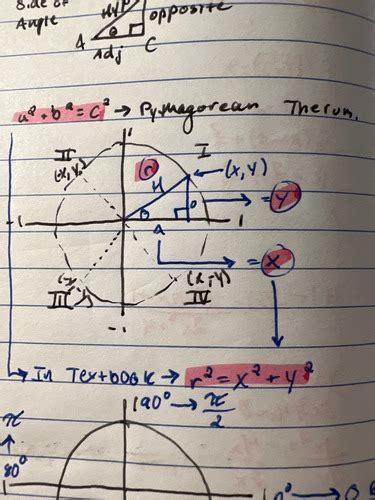 Side of
Angle
Hy
opposite
θ
A
Adj
C
a² + b² = c² → Pythagorean Therum.
1
II
(-x, y)
r
I
(x, y)
H
θ
O
= y
-1
A
1
= x
III
(x, -y)
IV
-1
In Textbook → r² = x² + y²
90° → π/2
π
180°
0°